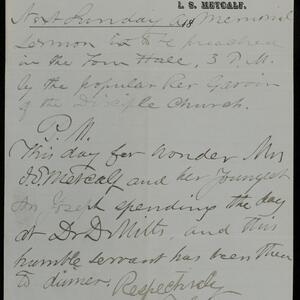 L. S. METCALF.
Next Sunday a Memorial
Sermon to be preached
in the Town Hall, 3 P.M.
by the popular Rev Garvin
of the Disciple Church.
P. M.
This day for wonder Mrs
Metcalf and her Youngest
Son Joseph spending the day
at Dr D Mitts, and this
humble servant has been there
to dinner. Respectively